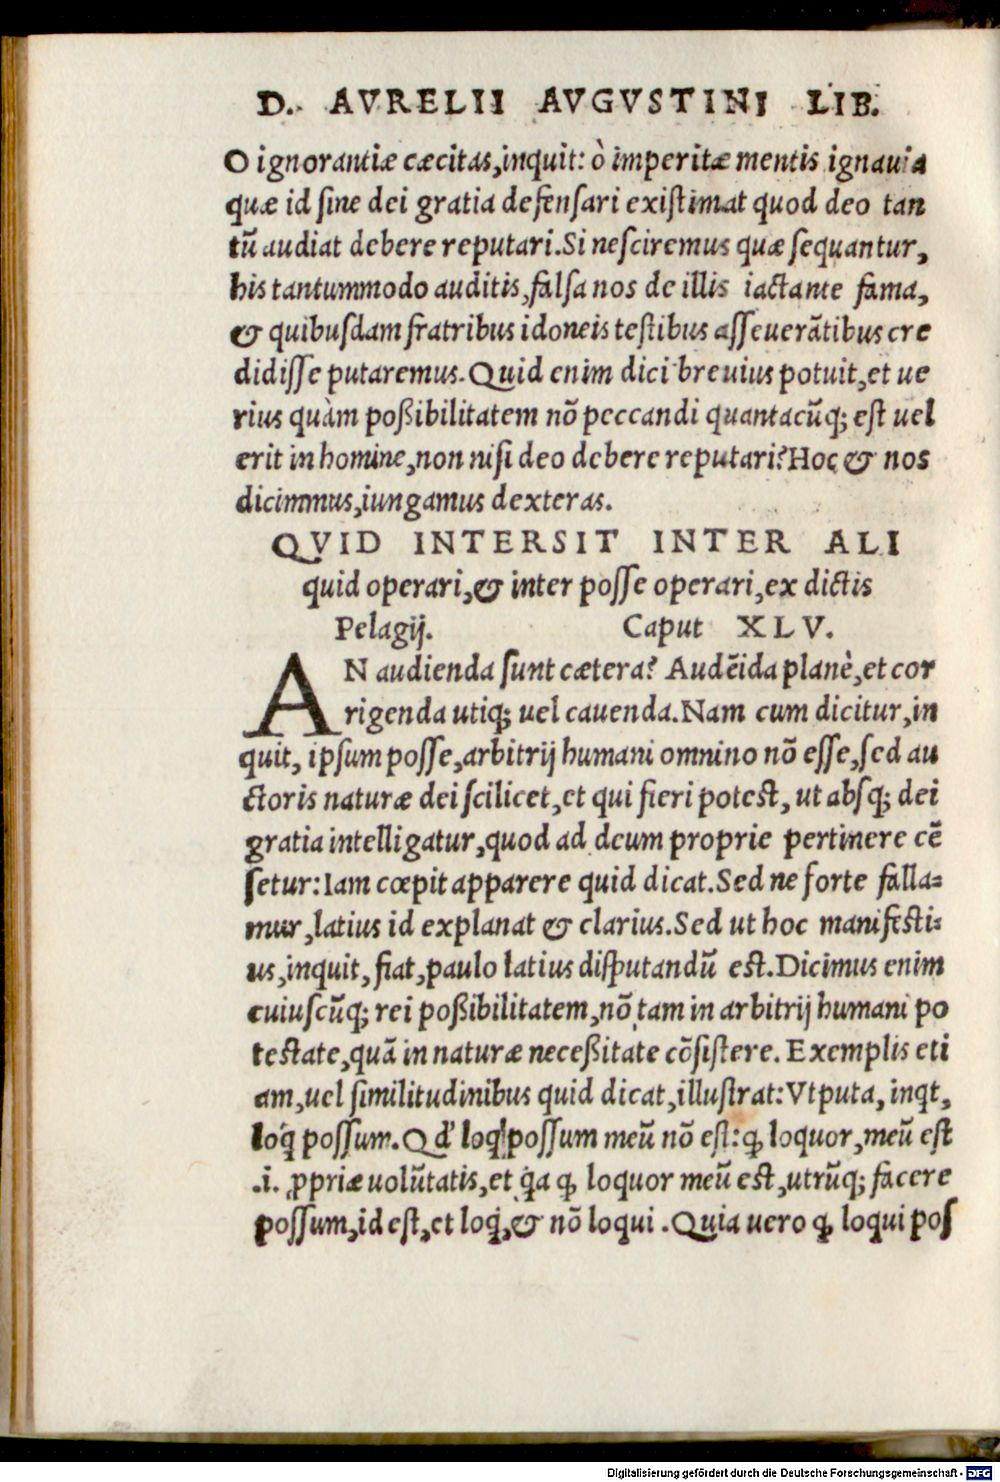 D. AVRELII AVGVSTINI LIB.
O ignorantiæ cæcitas, inquit: ò imperitæ mentis ignauia
quæ id sine dei gratia defensari existimat quod deo tan
tũ audiat debere reputari. Si nesciremus quæ sequantur,
his tantummodo auditis, falsa nos de illis iactante fama,
& quibusdam fratribus idoneis testibus asseuerãtibus cre
didisse putaremus. Quid enim dici breuius potuit, et ue
rius quàm poßibilitatem nõ peccandi quantacũq; est uel
erit in homine, non nisi deo debere reputari? Hoc & nos
dicimmus, iungamus dexteras.
QVID INTERSIT INTER ALI
quid operari, & inter posse operari, ex dictis
Pelagij. Caput XLV.
AN audienda sunt cætera? Audẽida planè, et cor
rigenda utiq; uel cauenda. Nam cum dicitur, in
quit, ipsum posse, arbitrij humani omnino nõ esse, sed au
ctoris naturæ dei scilicet, et qui fieri potest, ut absq; dei
gratia intelligatur, quod ad deum proprie pertinere cẽ
setur: Iam cœpit apparere quid dicat. Sed ne forte falla=
mur, latius id explanat & clarius. Sed ut hoc manifesti=
us, inquit, fiat, paulo latius disputandũ est. Dicimus enim
cuiuscũq; rei poßibilitatem, nõ tam in arbitrij humani po
testate, quã in naturæ neceßitate cõsistere. Exemplis eti
am, uel similitudinibus quid dicat, illustrat: Vtputa, inqt,
loq́ possum. Qď loq́ possum meũ nõ est: ꝙ loquor, meũ est
.i. ꝓpriæ uolũtatis, et q́a ꝙ loquor meũ est, utrũq; facere
possum, id est, et loq́, & nõ loqui. Quia uero ꝙ loqui pos
Digitalisierung gefördert durch die Deutsche Forschungsgemeinschaft - DFG